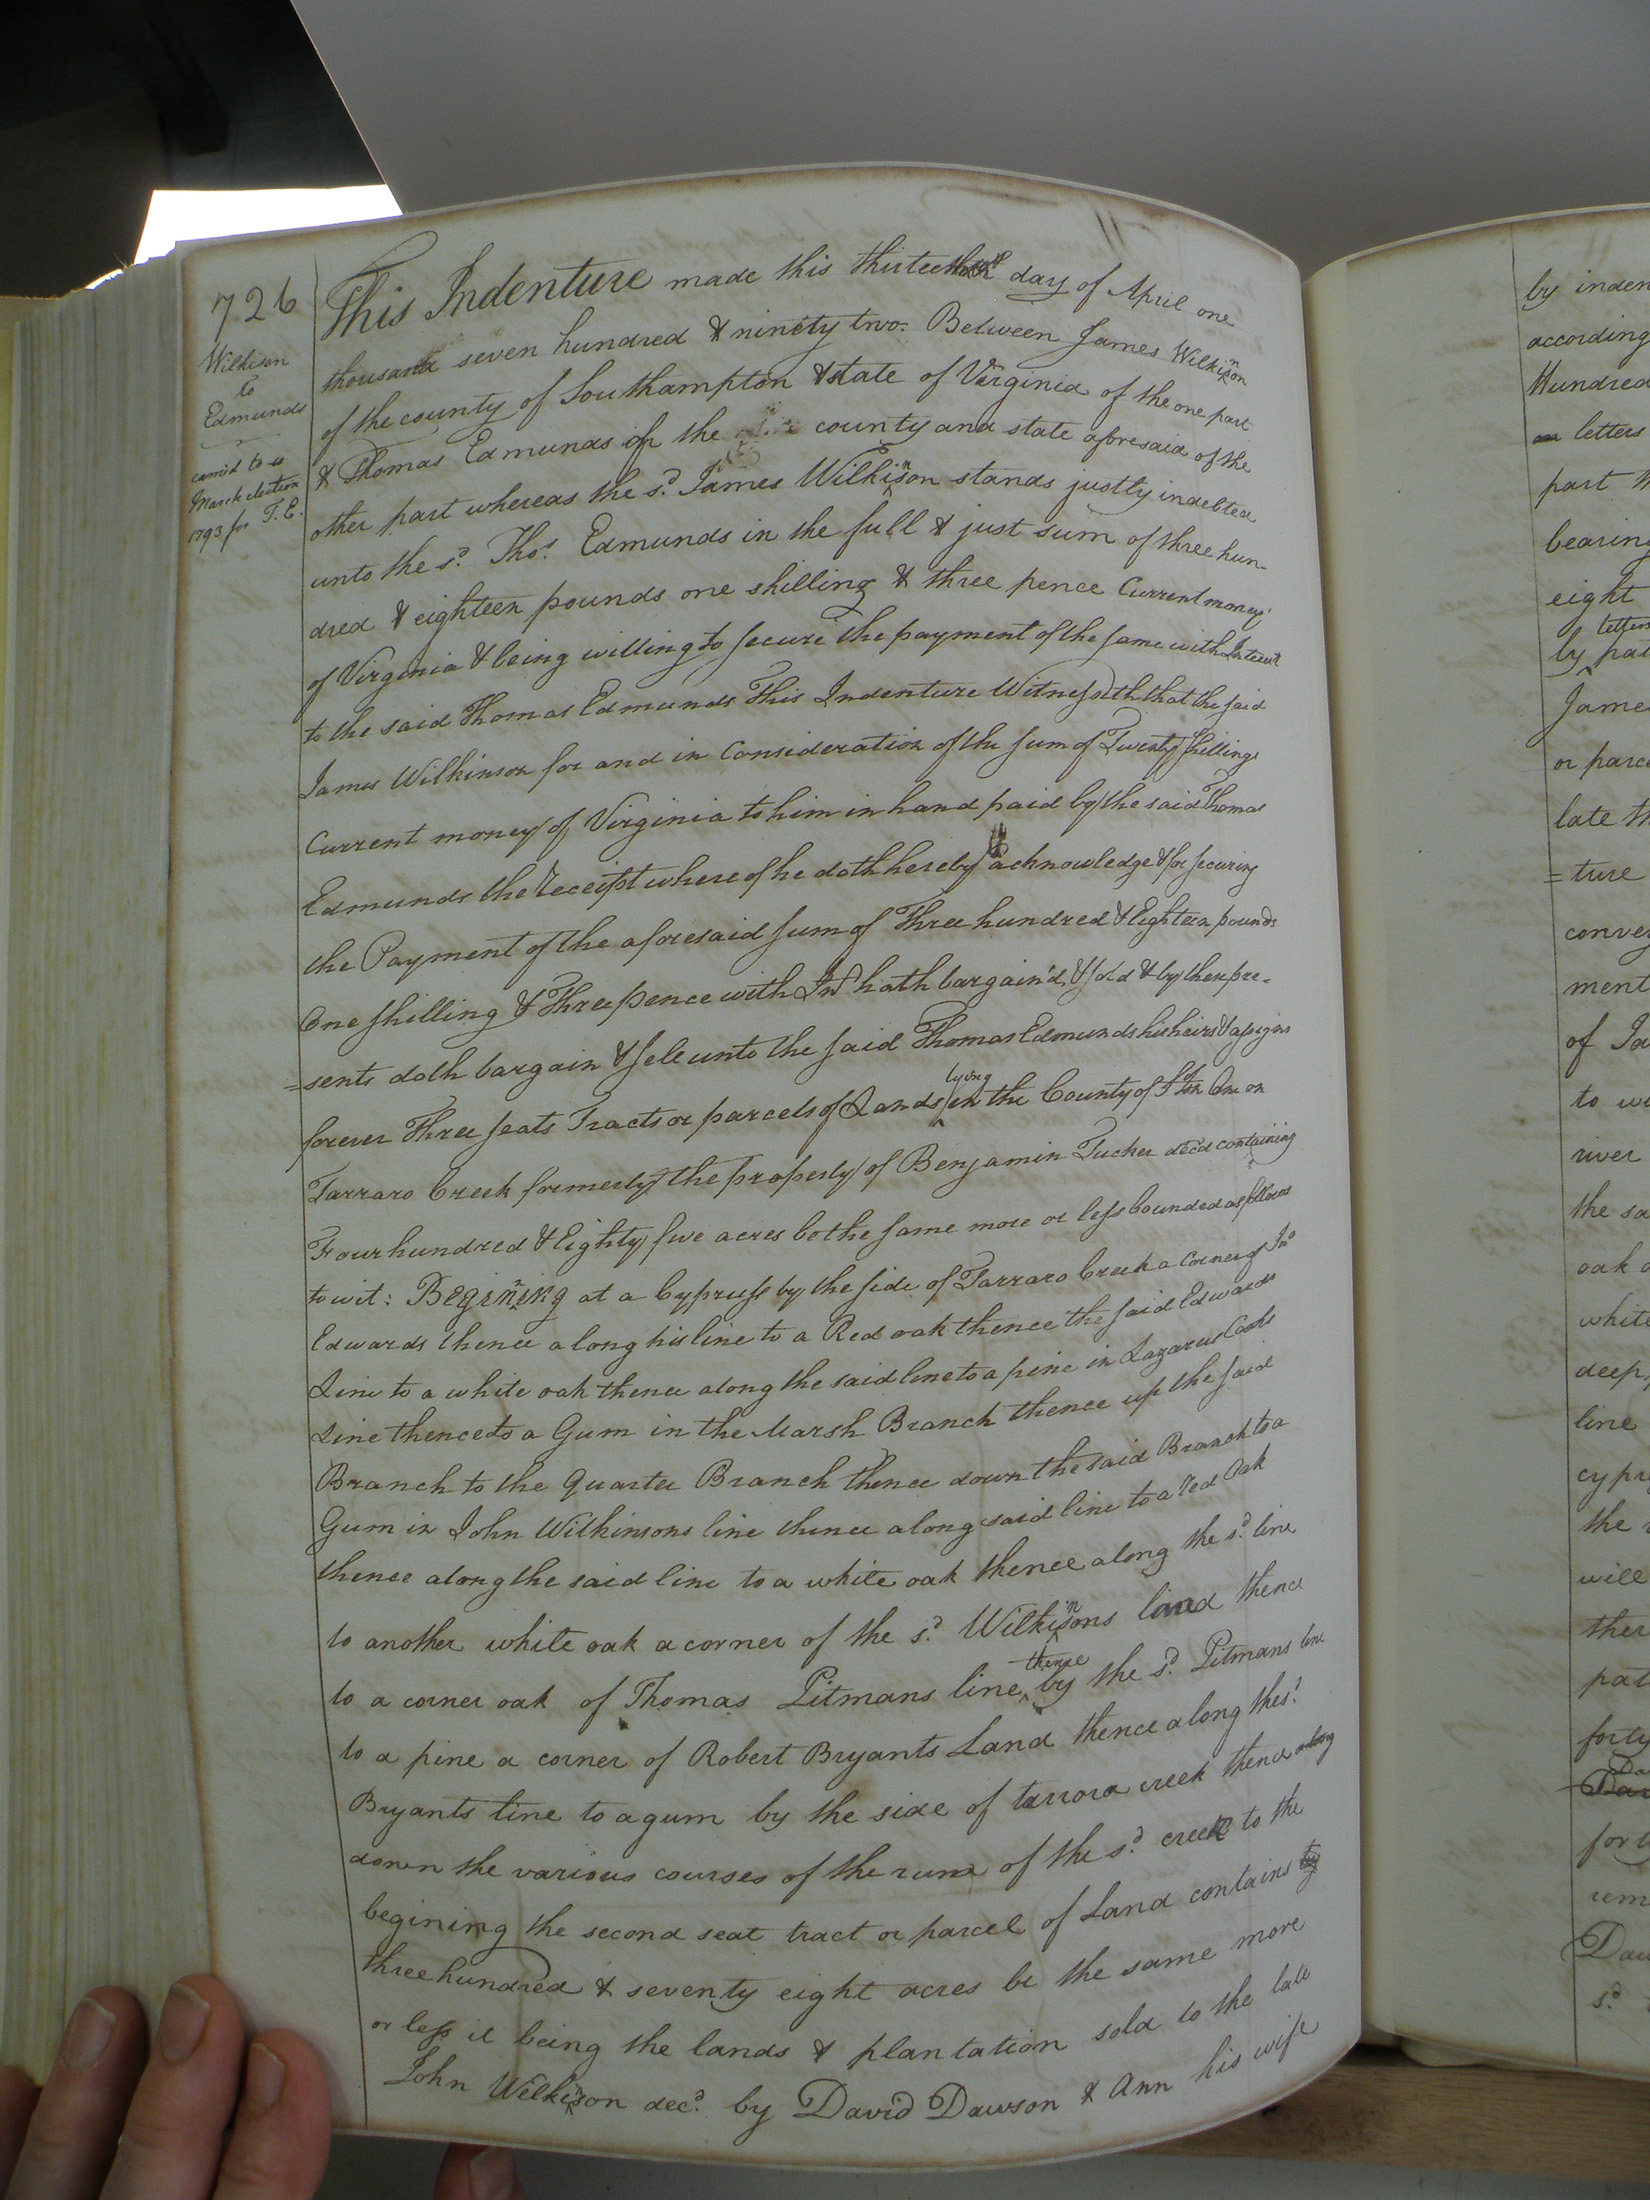 726
Wilkison
to
Edmunds
March election
1793 for T. E.
This Indenture made this thirteenth day of April one
thousand seven hundred & ninety two. Between James Wilkinson
of the county of Southampton & state of Virginia of the one part
& Thomas Edmunds of the county and state aforesaid of the
other part whereas the sd. James Wilkinson stands justly indebted
unto the sd. Thos. Edmunds in the full & just sum of three hun-
dred & eighteen pounds one shilling & three pence Current money
of Virginia & being willing to secure the payment of the same with Interest
to the said Thomas Edmunds This Indenture Witnesseth that the said
James Wilkinson for and in Consideration of the sum of Twenty shillings
Current money of Virginia to him in hand paid by the said Thomas
Edmunds the receipt whereof he doth hereby acknowledge & for securing
the Payment of the aforesaid sum of Three hundred & Eighteen pounds
One shilling & Three pence with Int hath bargain'd & sold & by these pre-
=sents doth bargain & sele unto the said Thomas Edmunds his heirs & assigns
forever Three seats Tracts or parcels of Lands lying in the County of Soton One on
Tarraro Creek formerly the property of Benjamin Tucker decd containing
Four hundred & Eighty five acres be the same more or less bounded as follows
to wit: Begining at a Cypruss by the side of Tarraro Creek a Corner of Jno
Edwards thence along his line to a Red oak thence the said Edwards
Line to a white oak thence along the said line to a pine in Lazarus Cooks
Line thence to a Gum in the Marsh Branch thence up the said
Branch to the Quarter Branch thence down the said Branch to a
Gum in John Wilkinsons line thence along said line to a red Oak
thence along the said line to a white oak thence along the sd. line
to another white oak a corner of the sd. Wilkinsons land thence
to a corner oak of Thomas Pitmans line, thence by the sd. Pitmans line
to a pine a corner of Robert Bryants Land thence along the sd.
Bryants line to a gum by the side of tarrora creek thence along
down the various courses of the runs of the sd. creek to the
begining the second seat tract or parcel of Land contains
three hundred & seventy eight acres be the same more
or less it being the lands & plantation sold to the late
John Wilkinson decd. by David Dawson & Ann his wife
by inden
according
Hundred
letters
part
bearing
eight
letters
by pat
James
or parce
late th
=ture
convey
ment
of Ja
to
river
the sa
oak
white
deep
line
cypr
the
will
ther
pat
forty
for
rem
Daw
sd.